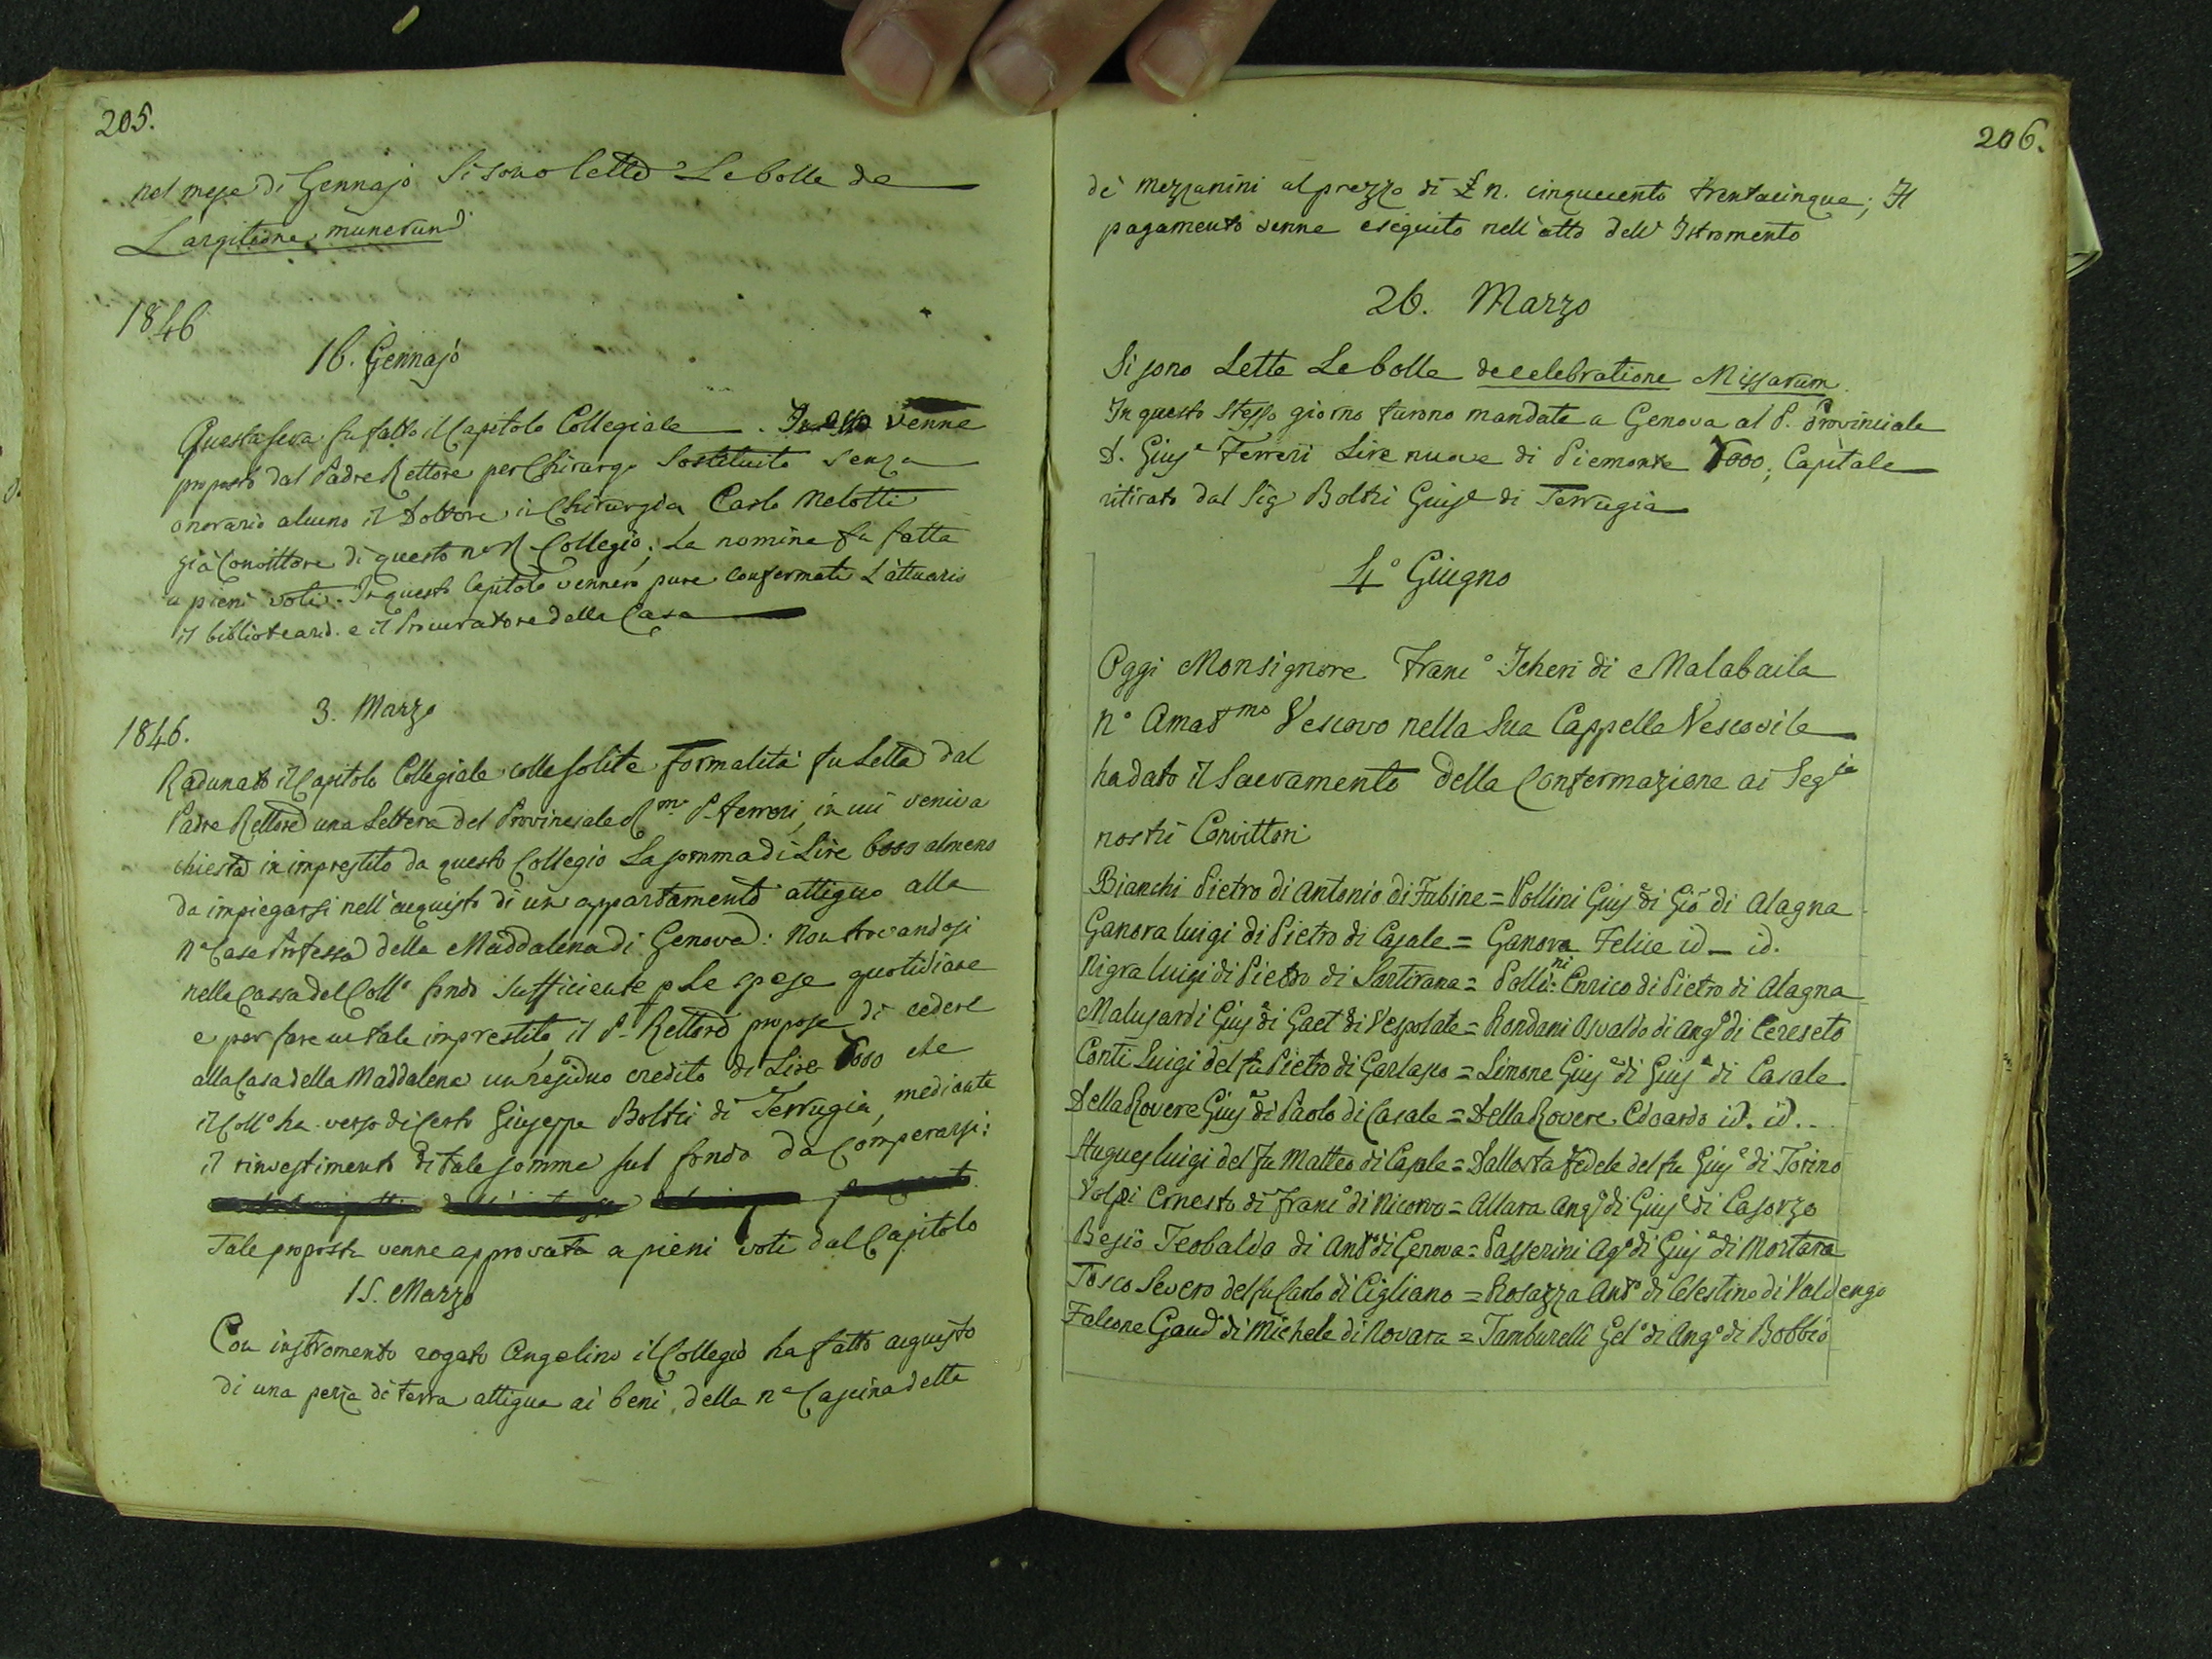 205.
nel mese di Gennajo Si sono lette Le bolle de
Largitione munerum
1846
16. Gennajo
Questa sera fu fatto il Capitolo Collegiale. In esso venne
proposto dal Padre Rettore per Chirurgo Sostituito senza
onorario alcuno il Dottore in Chirurgia Carlo Melotti
già Convittore di questo n° R. Collegio; La nomina fu fatta
a pieni voti. In questo Capitolo vennero pure confermati L'attuario
il bibliotecario. e il Procuratore della Casa
3. Marzo
1846.
Radunato il Capitolo Collegiale colle solite formalità fu Letta dal
Padre Rettore una Lettera del Provinciale R.mo P. Ferreri, in cui veniva
chiesta in imprestito da questo Collegio La somma di Lire 6000 almeno
da impiegarsi nell'acquisto di un appartamento attiguo alla
n.a Casa Professa della Maddalena di Genova: Non trovandosi
nella Cassa del Coll.o fondo sufficiente p Le spese quotidiane
e per fare un tale imprestito, il P. Rettore propose di cedere
alla Casa della Maddalena un residuo credito di Lire 8000 che
il Coll.o ha verso di certo Giuseppe Boltri di Terrugia, mediante
il rinvestimento di tale somma sul fondo da Comperarsi:
Tale proposta venne approvata a pieni voti dal Capitolo
15. Marzo
Con instromento rogato Angelino il Collegio ha fatto acquisto
di una pezza di terra attigua ai beni della n.a Cascina detta
206.
dè Mezzanini al prezzo di £ n. cinquecento trentacinque; Il
pagamento venne eseguito nell'atto dell'Istromento
26. Marzo
Si sono Lette Le bolle de celebratione Missarum.
In questo stesso giorno furono mandate a Genova al P. Provinciale
D. Gius.e Ferreri Lire nuove di Piemonte 8000, Capitale
ritirato dal Sig Boltri Gius.e di Terrugia
4° Giugno
Oggi Monsignore Franc° Icheri di Malabaila
n° Amat.mo Vescovo nella Sua Cappella Vescovile
ha dato il Sacramento della Confermazione ai Seg.ti
nostri Convittori
Bianchi Pietro di Antonio di Fubine = Pollini Gius.e di Gio di Alagna
Ganora Luigi di Pietro di Casale = Ganora Felice id _ id.
Nigra Luigi di Pietro di Sartirana = Pollini Enrico di Pietro di Alagna
Malusardi Gius.e di Gaet di Vespolate = Rondani Osvaldo di Ang° di Cereseto
Conti Luigi del fu Pietro di Garlasco = Simone Gius.e di Gius.e di Casale
Della Rovere Gius.e di Paolo di Casale = Della Rovere Edoardo id. id..
Hugues Luigi del fu Matteo di Casale = Dallosta Fedele del fu Gius.e di Torino
Volpi Ernesto di Franc° di Nicorvo = Allara Ang° di Gius.e di Casorzo
Besio Teobaldo di Ant° di Genova = Passerini Ag° di Gius.e di Mortara
Tosco Severo del fu Carlo di Cigliano = Rosazza Ant° di Celestino di Valdengo
Falcone Gaud° di Michele di Novara = Tamburelli Gel° di Ang° di Bobbio